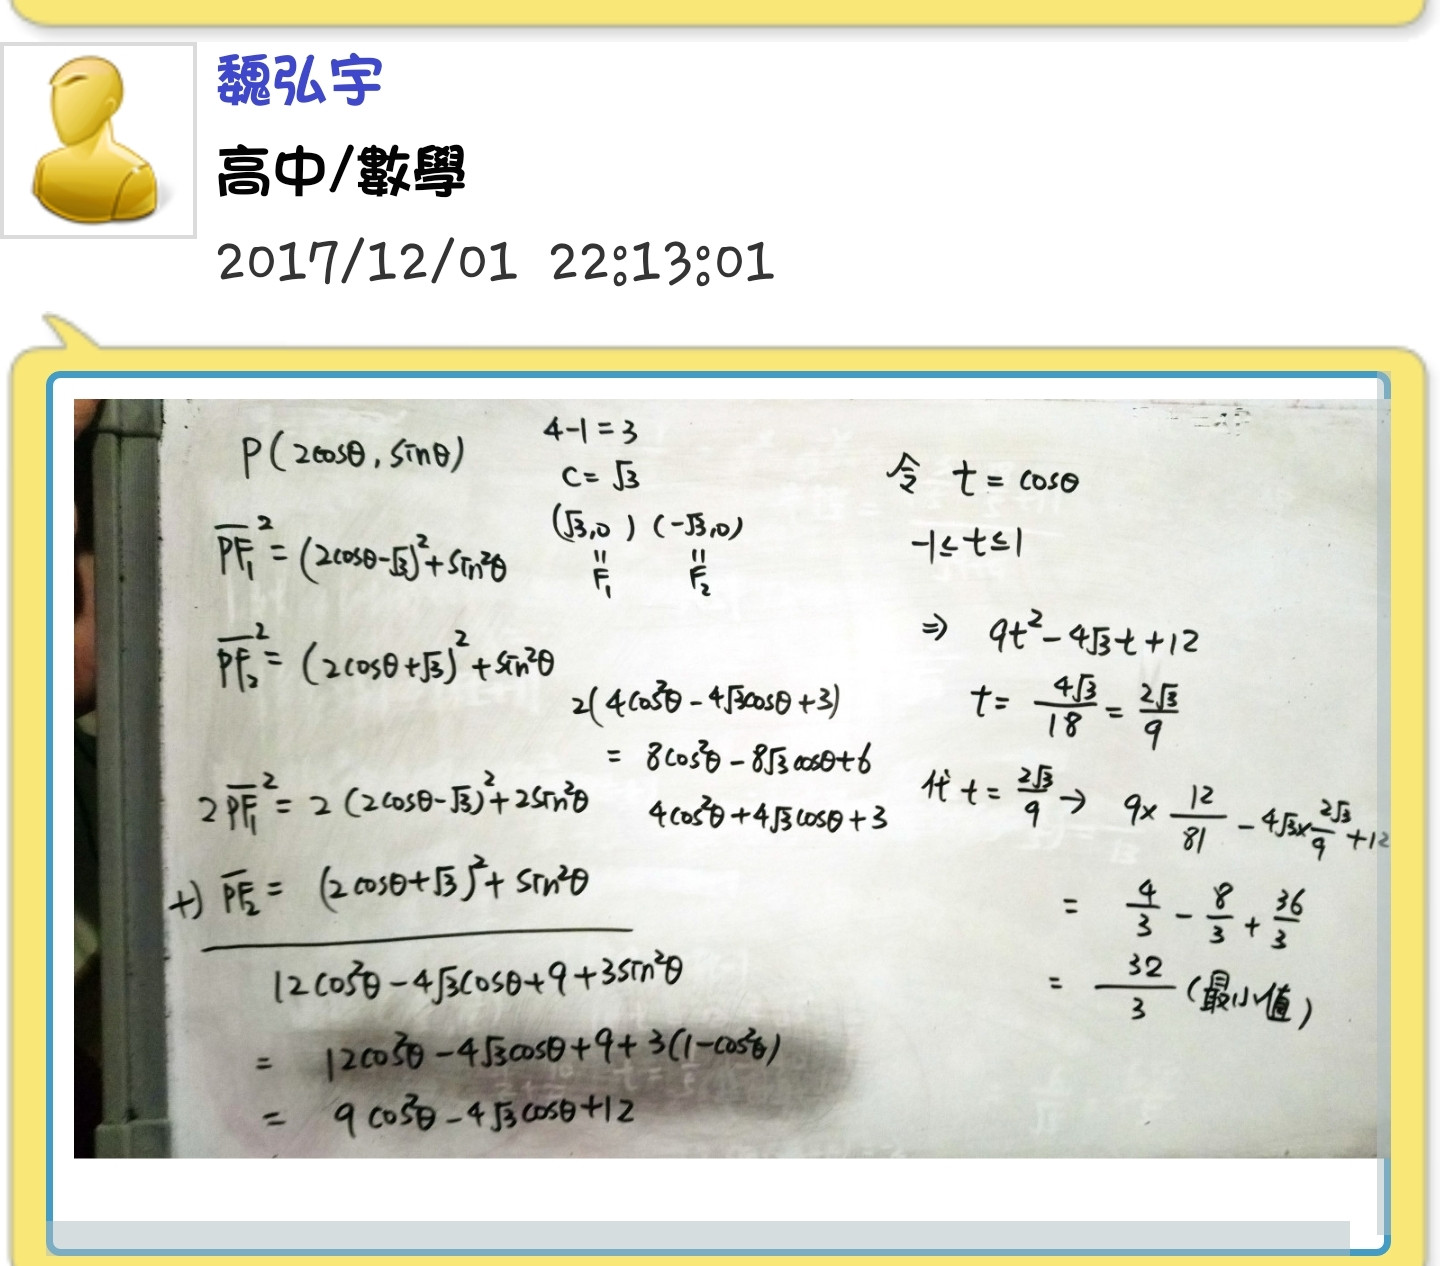 魏弘宇
高中/數學
2017/12/01 22:13:01
P(2cosθ, sinθ)
4-1=3
C=√3
(√3,0) (-√3,0)
" "
F₁ F₂
PF₁² = (2cosθ-√3)²+sin²θ
PF₂² = (2cosθ+√3)²+sin²θ
2(4cos²θ-4√3cosθ+3)
= 8cos²θ-8√3cosθ+6
4cos²θ+4√3cosθ+3
2PF₁² = 2(2cosθ-√3)²+2sin²θ
+) PF₂ = (2cosθ+√3)²+sin²θ
12cos²θ-4√3cosθ+9+3sin²θ
= 12cos²θ-4√3cosθ+9+3(1-cos²θ)
= 9cos²θ-4√3cosθ+12
令 t = cosθ
-1≤t≤1
⇒ 9t²-4√3t+12
t= 4√3/18 = 2√3/9
代 t= 2√3/9 → 9× 12/81 - 4√3× 2√3/9 +12
= 4/3 - 8/3 + 36/3
= 32/3 (最小值)